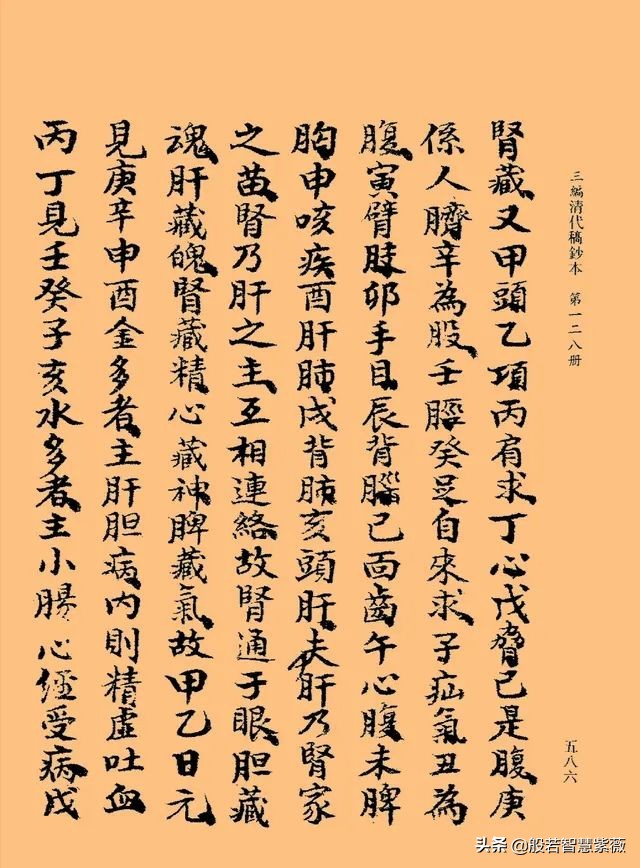 三編清代稿鈔本 第一二八册
腎藏又甲頭乙項丙肩求丁心戊脅己是腹庚
係人臍辛為股壬脛癸足自來求子疝氣丑為
腹寅臂肢卯手目辰背腦巳面齒午心腹未脾
胸申咳疾酉肝肺戌背肺亥頭肝夫肝乃腎家
之苗腎乃肝之主互相連絡故腎通于眼胆藏
魂肝藏魄腎藏精心藏神脾藏氣故甲乙日元
見庚辛申酉金多者主肝胆病内則精虛吐血
丙丁見壬癸子亥水多者主小腸心經受病戌
五八六
头条@般若智慧紫薇